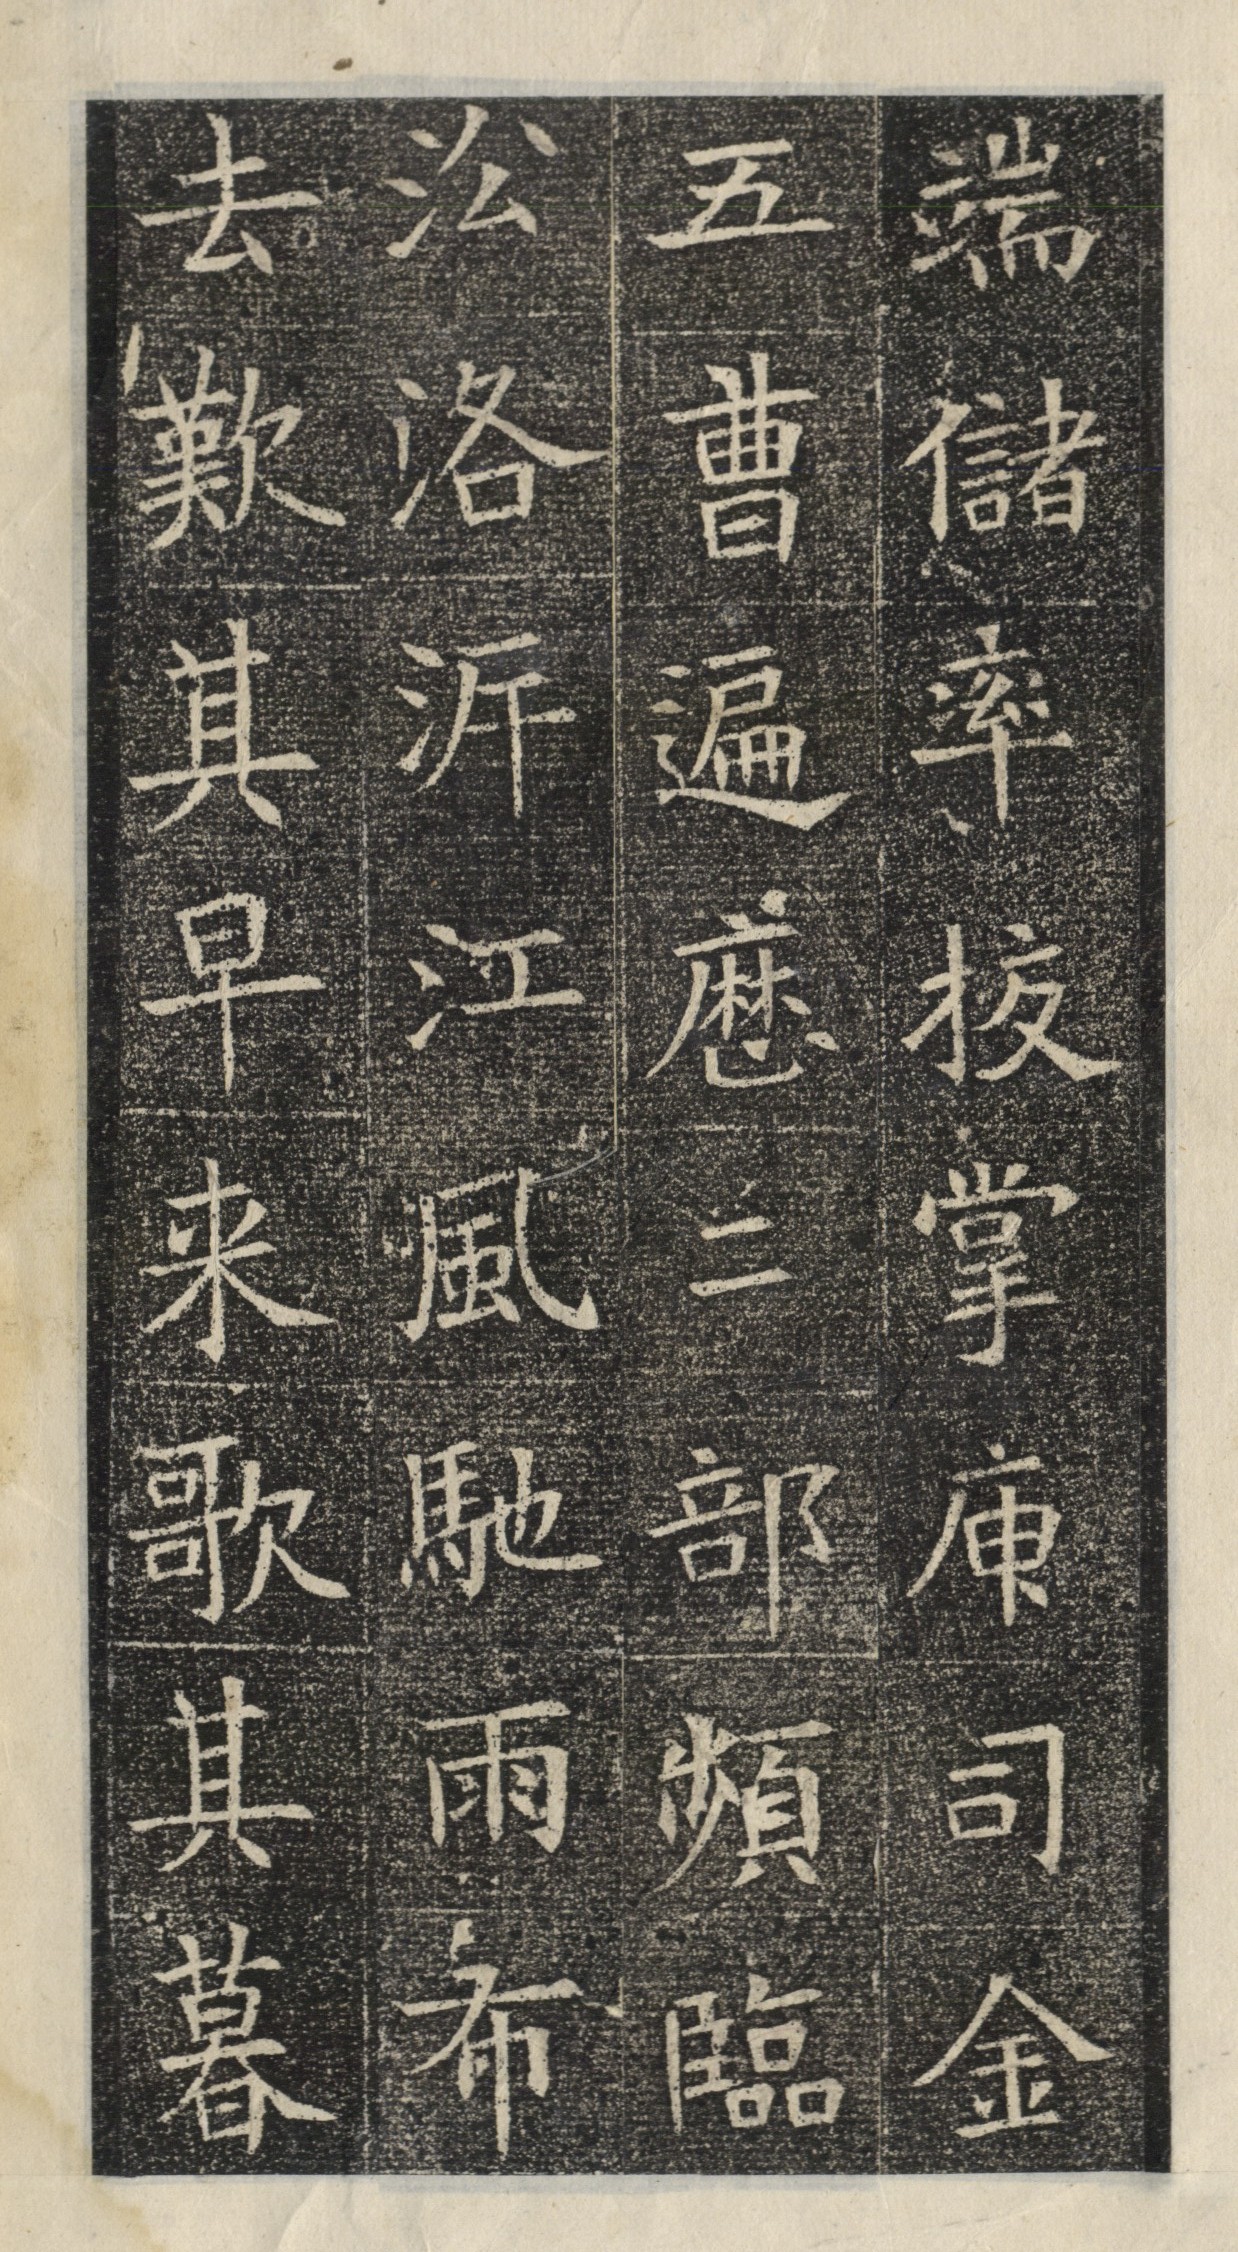 端儲率挍掌庾司金
五曹遍歷三部頻臨
㳂洛泝江風馳雨布
去歎其早来歌其暮